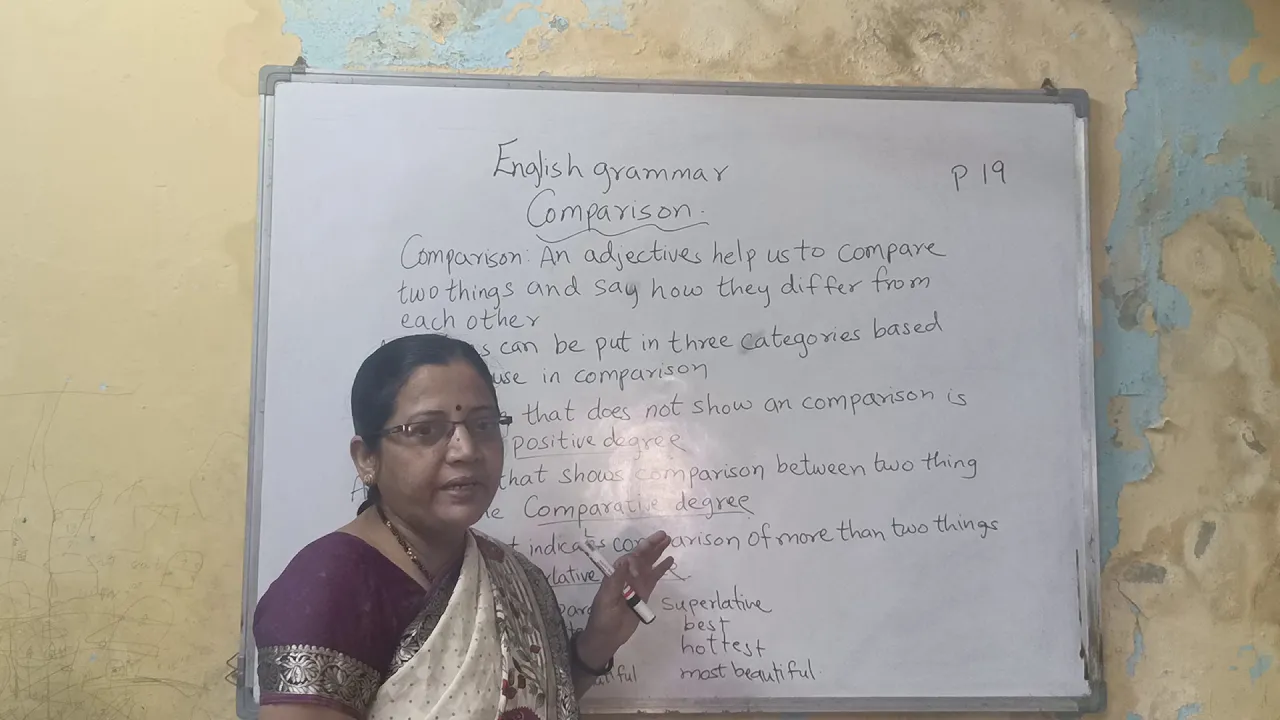 English grammar
P 19
Comparison.
Comparison: An adjectives help us to compare
two things and say how they differ from
each other
can be put in three categories based
use in comparison
that does not show an comparison is
positive degree
that shows comparison between two thing
Comparative degree
indicats comparison of more than two things
superlative
best
hottest
most beautiful.